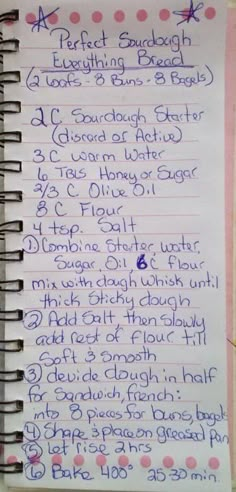 Perfect Sourdough
Everything Bread
(2 loafs - 8 Buns - 8 Bagels)
2 C Sourdough Starter
(discard or Active)
3 C warm Water
6 TBLS Honey or Sugar
2/3 C Olive Oil
8 C Flour
4 tsp. Salt
① Combine Starter, water,
Sugar, Oil, 6 C flour
mix with dough whisk until
thick Sticky dough
② Add Salt, then Slowly
add rest of flour till
Soft & Smooth
③ devide dough in half
for Sandwich, french:
into 8 pieces for buns, bagels
④ Shape & place on greased pan
⑤ let rise 2 hrs
⑥ Bake 400° 25-30 min.